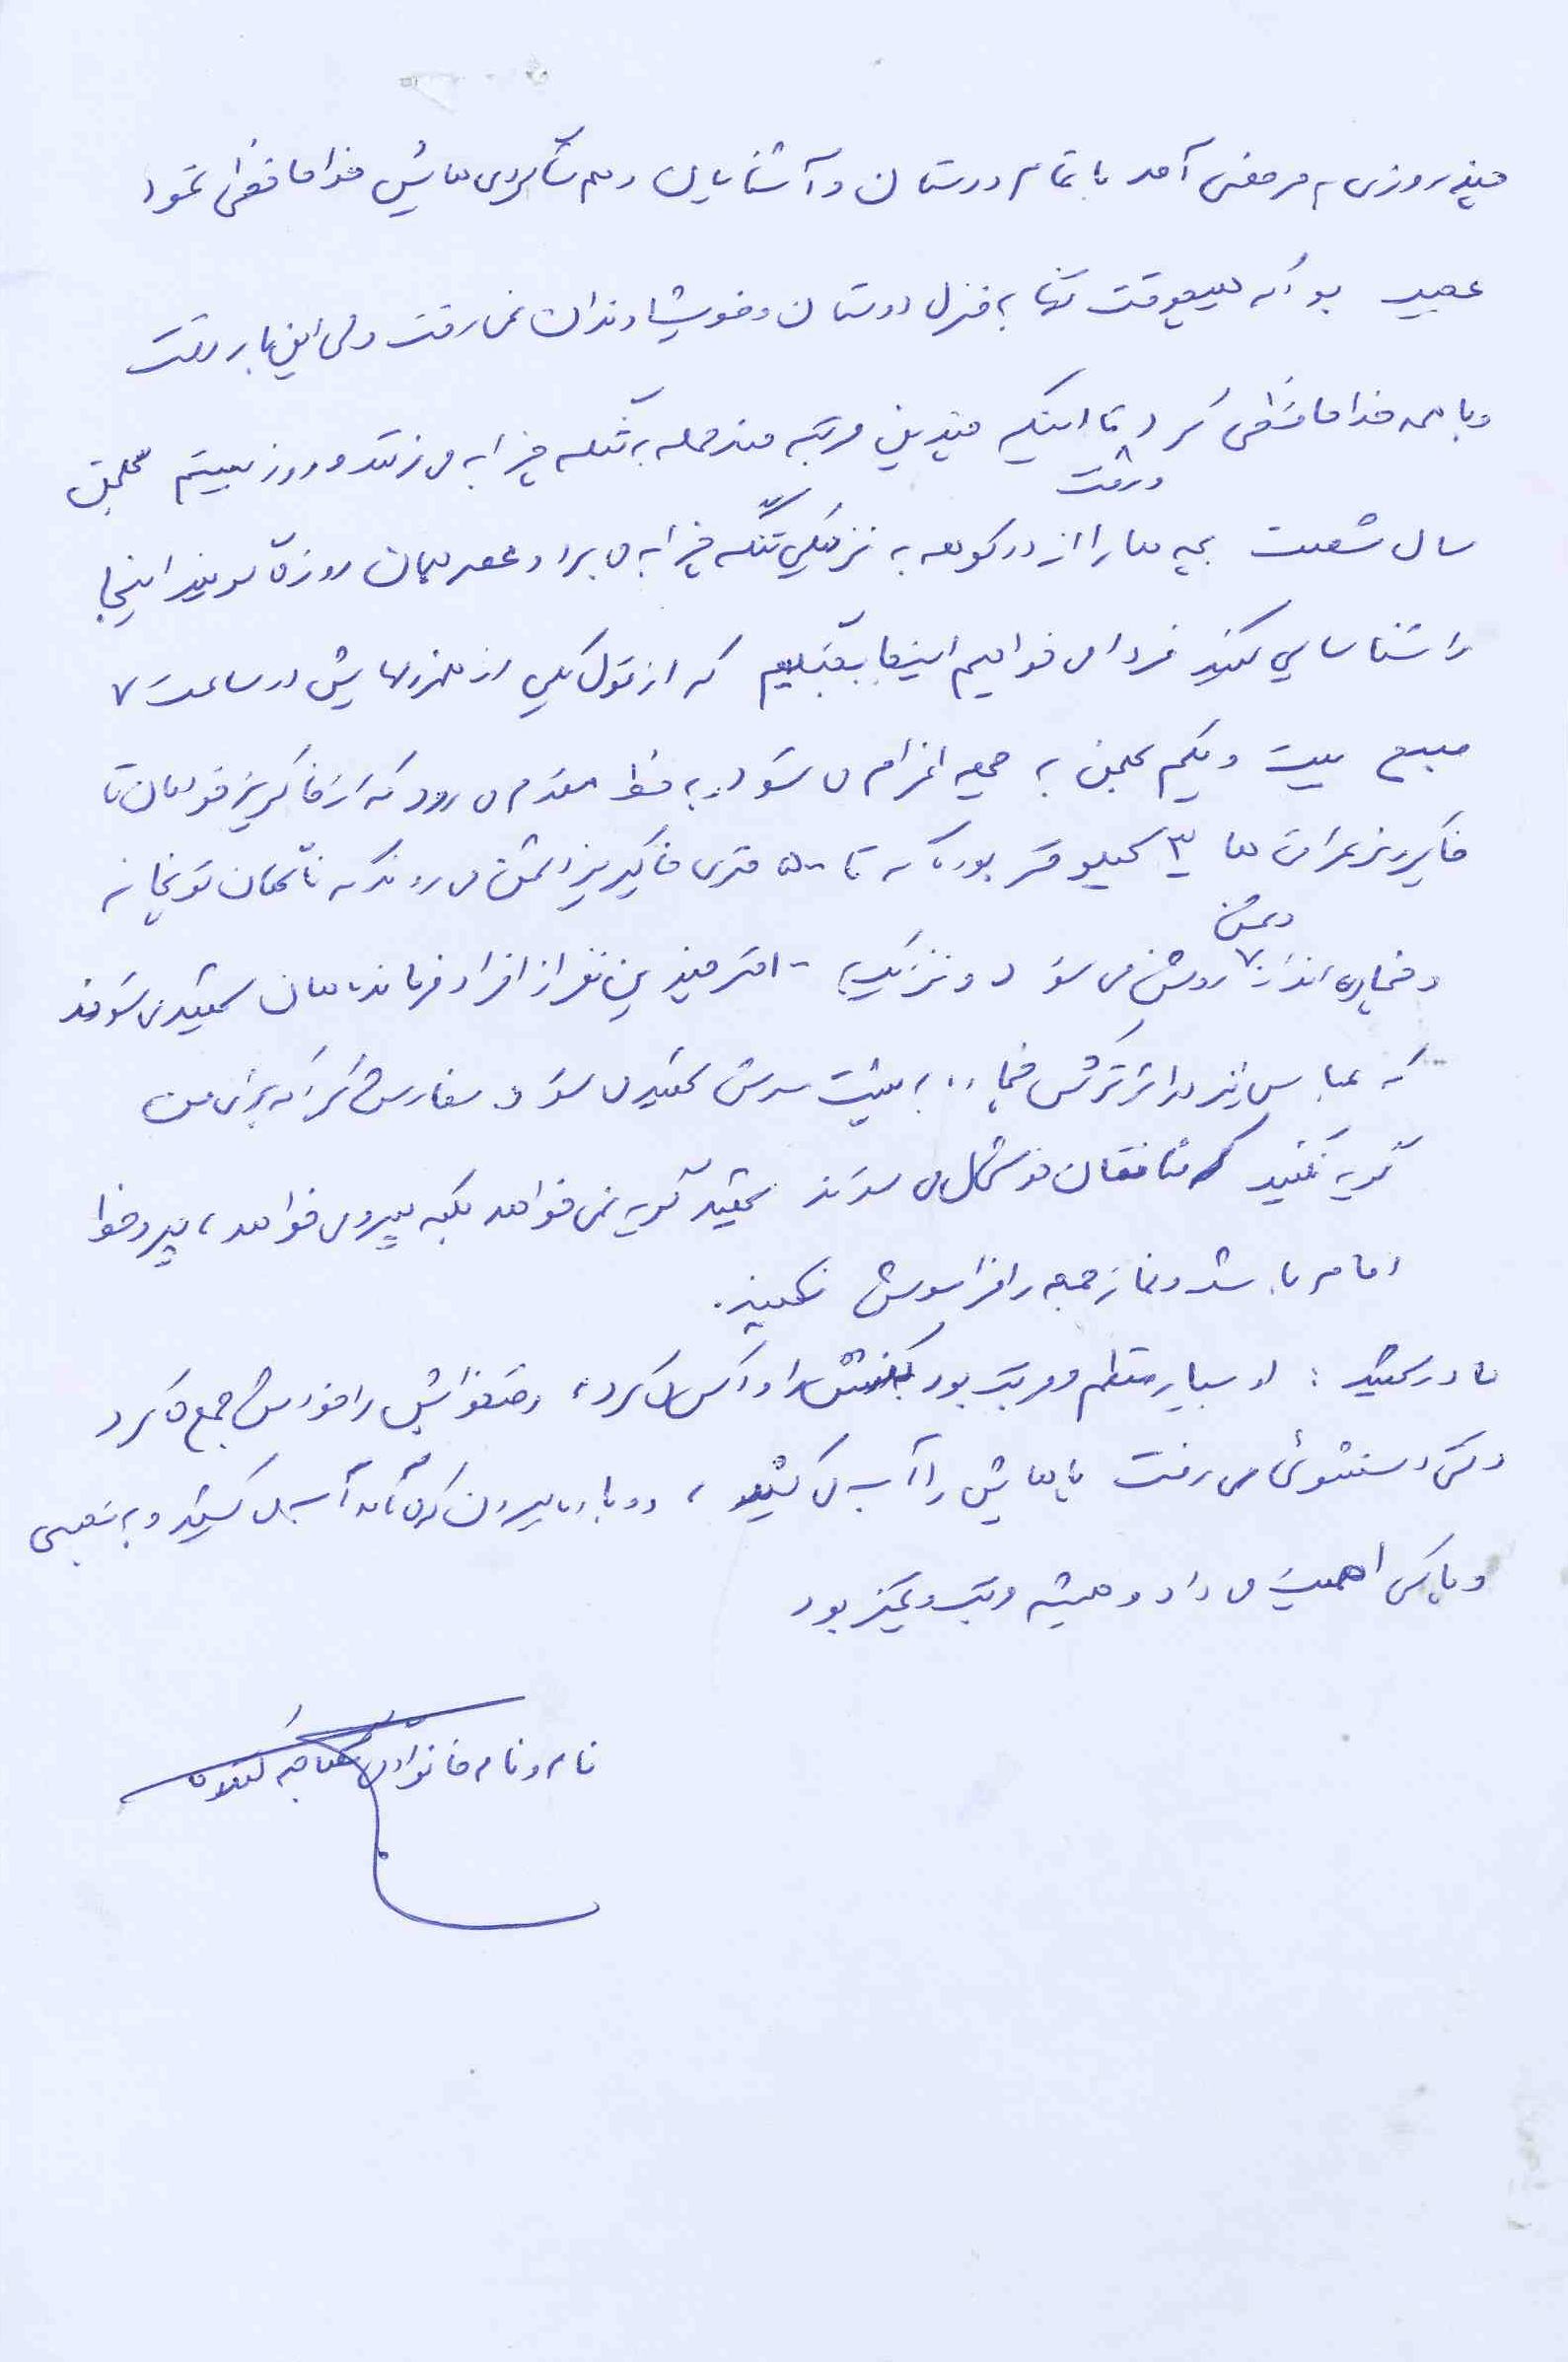 چند روزی به مرخصی آمد با تمام دوستان و آشنایان و هم شاگردی هایش خداحافظی نمود
عجیب بود که هیچوقت تنها به منزل دوستان و خویشاوندان نمی رفت ولی این بار رفت
و با همه خداحافظی کرد و رفت تا اینکه چندین مرتبه ضد حمله به تنگه چزابه می زنند و روز بیستم بهمن
سال شصت بچه ها را از دو کوهه به نزدیکی تنگه چزابه می برد و عصر همان روز می گویند اینجا
را شناسایی کنید فردا می خواهیم اینجا بجنگیم که از قول یکی از همرزمایش در ساعت ۷
صبح بیست و یکم بهمن به جبهه اعزام می شود و به خط مقدم می رود که از خاکریز خودمان تا
خاکریز عراقی ها ۳ کیلومتر بوده که تا ۵۰۰ متری خاکریز دشمن می روند که ناگهان توپخانه
و خمپاره اندازهای دشمن روشن می شود و نزدیک ۱۰ متر چندین نفر از افراد فرمانده مان شهید می شوند
که عباس نیز در اثر ترکش خمپاره به پشت سرش شهید می شود و سفارش کرد که برای من
گریه نکنید که منافقان خوشحال می شوند شهید گریه نمی خواهد بلکه پیرو می خواهد، پیرو خط
امام باشید و نماز جمعه را فراموش نکنید.
مادر شهید : او بسیار منظم و مرتب بود کفشش را واکس می کرد، رختخوابش را خودش جمع می کرد
دستشوئی می رفت پاهایش را آب می کشید، دوباره بیرون که می آمد آب می کشید و به نجسی
و پاکی اهمیت می داد و همیشه مرتب و تمیز بود
نام و نام خانوادگی مصاحبه کننده